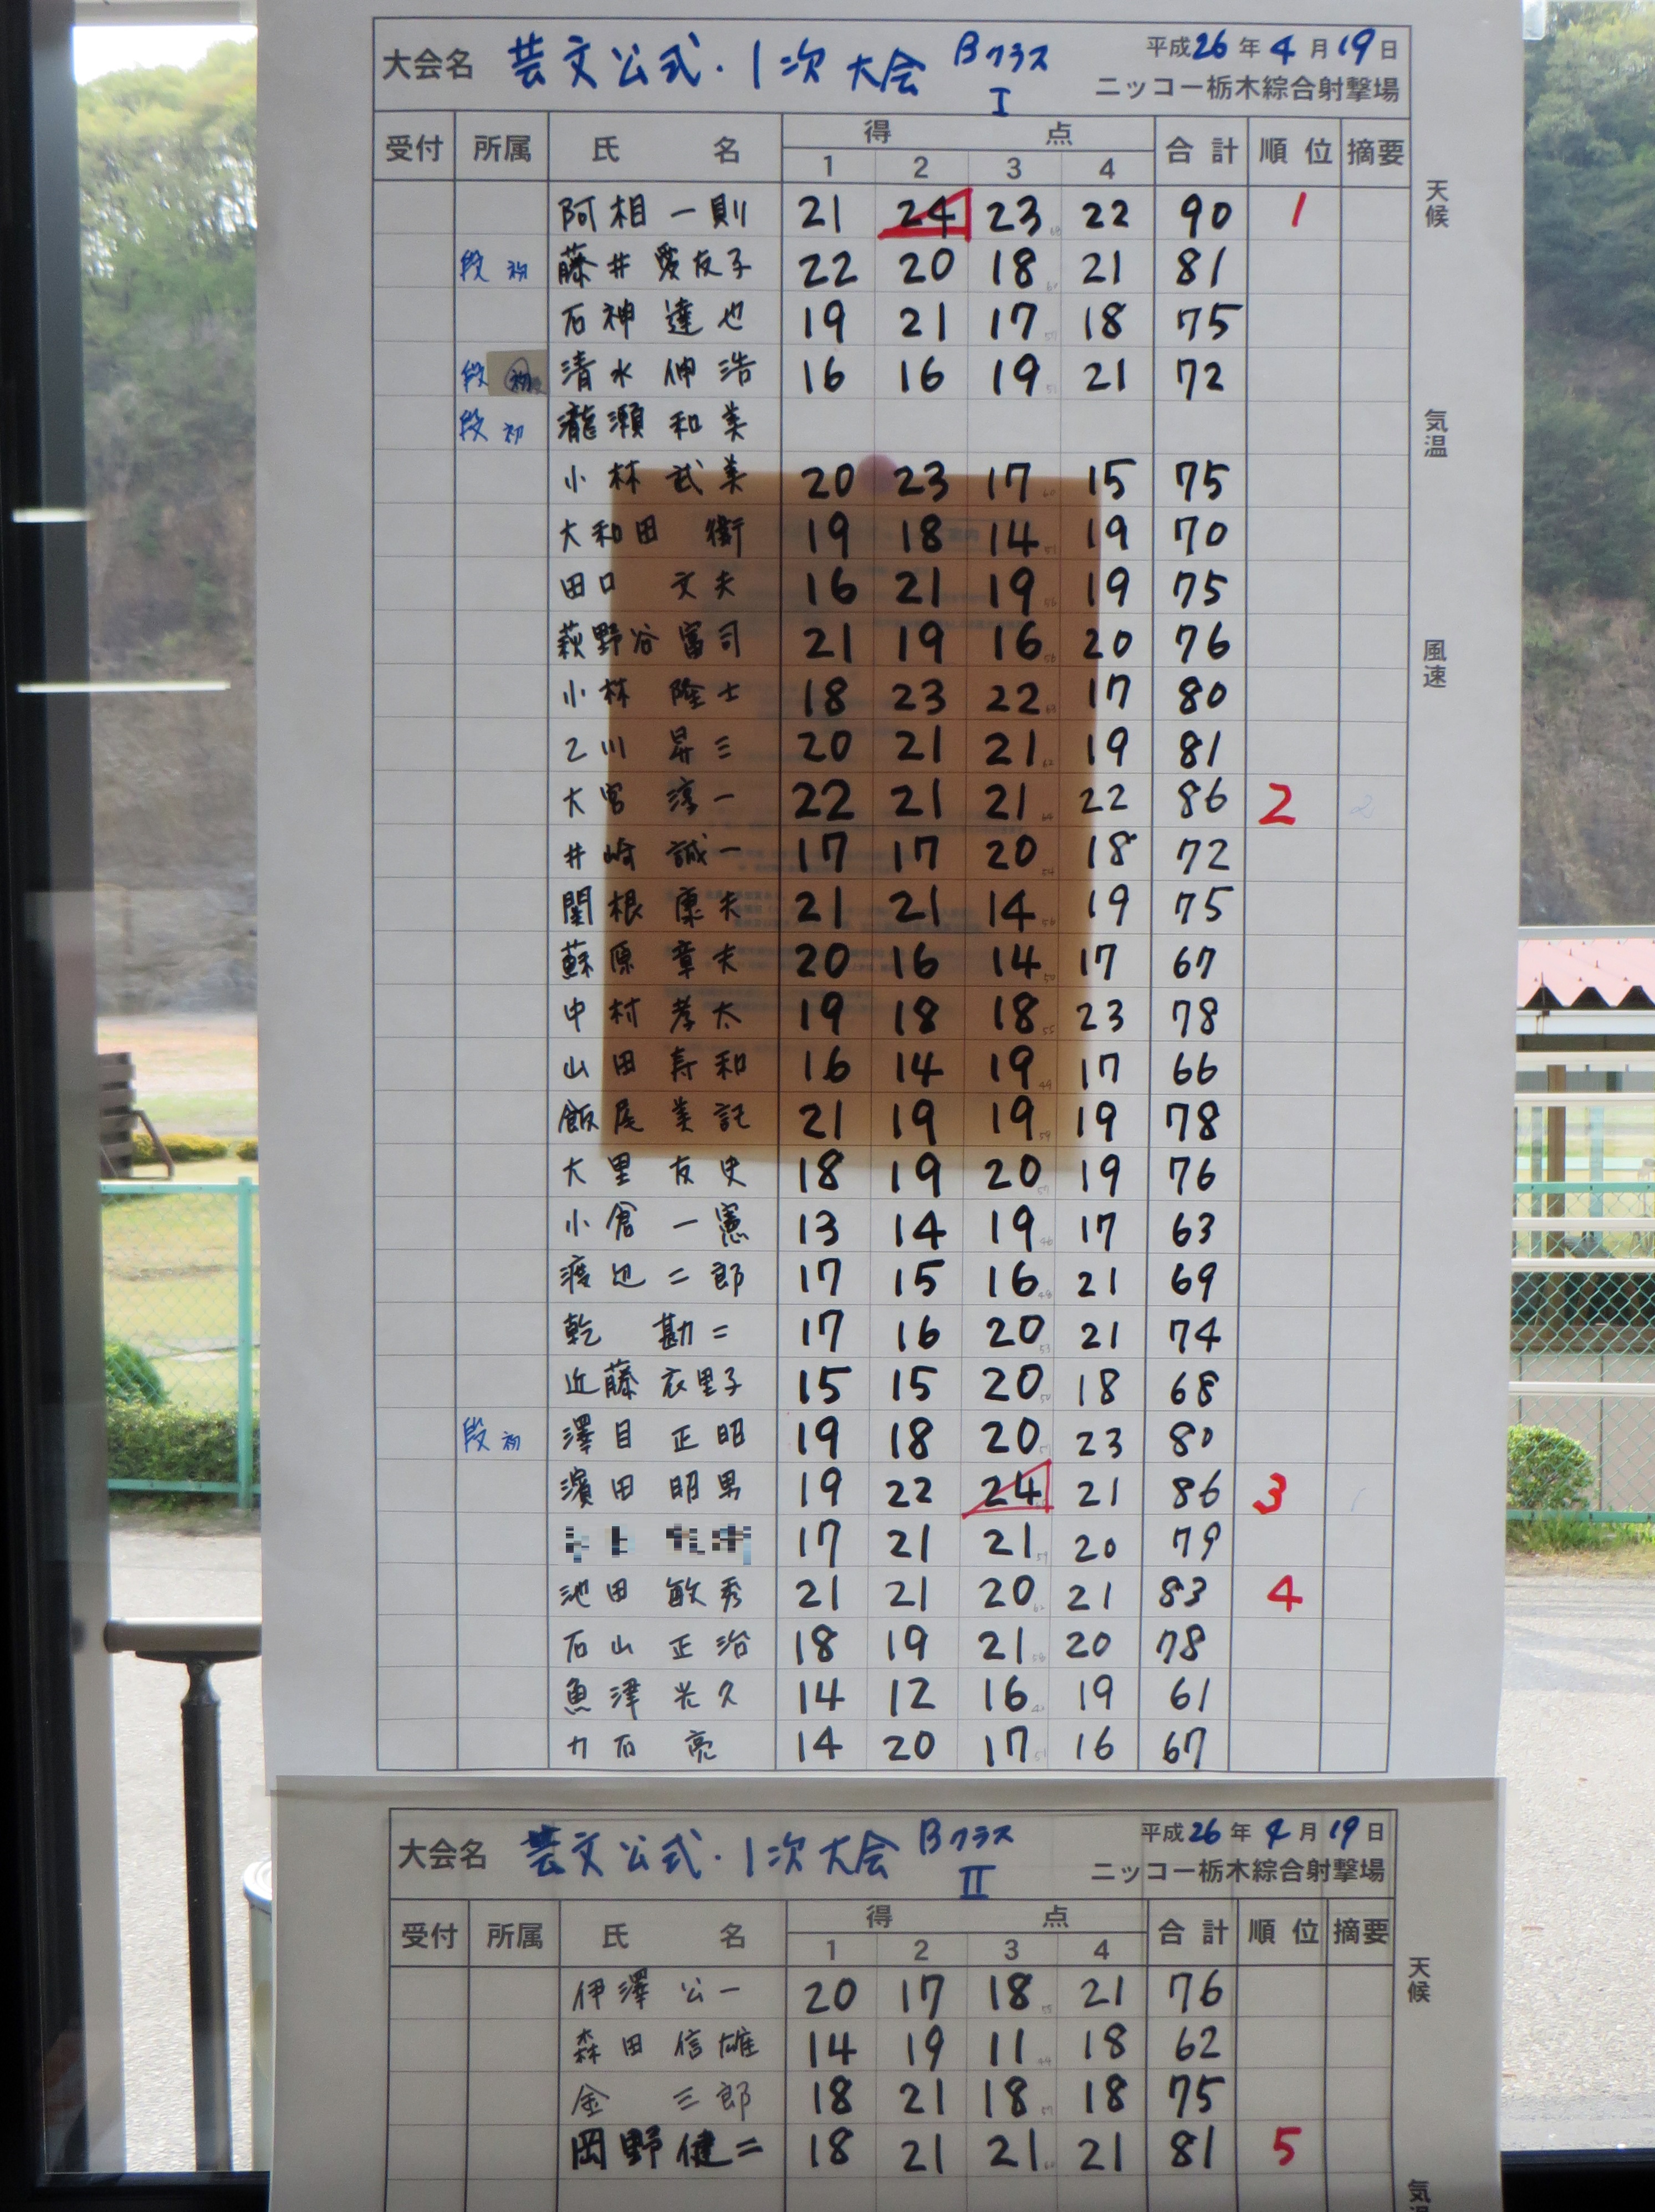 大会名 芸文公式・1次大会 Bクラス I 平成26年4月19日
ニッコー栃木綜合射撃場
受付 所属 氏名 得点 合計 順位 摘要
1 2 3 4
阿相一則 21 24 23 22 90 1
段初 藤井愛友子 22 20 18 21 81
石神達也 19 21 17 18 75
段初 清水伸浩 16 16 19 21 72
段初 瀧瀬和美
小林武美 20 23 17 15 75
大和田衛 19 18 14 19 70
田口文夫 16 21 19 19 75
萩野谷富司 21 19 16 20 76
小林隆士 18 23 22 17 80
乙川昇三 20 21 21 19 81
大宮淳一 22 21 21 22 86 2
井崎誠一 17 17 20 18 72
関根康夫 21 21 14 19 75
蘇原章夫 20 16 14 17 67
中村孝太 19 18 18 23 78
山田寿和 16 14 19 17 66
飯尾美記 21 19 19 19 78
大里友史 18 19 20 19 76
小倉一憲 13 14 19 17 63
渡辺二郎 17 15 16 21 69
乾勘二 17 16 20 21 74
近藤衣里子 15 15 20 18 68
段初 澤目正昭 19 18 20 23 80
濱田昭男 19 22 24 21 86 3
17 21 21 20 79
池田敏秀 21 21 20 21 83 4
石山正治 18 19 21 20 78
魚津光久 14 12 16 19 61
力石亮 14 20 17 16 67
天候
気温
風速
大会名 芸文公式・1次大会 Bクラス II 平成26年4月19日
ニッコー栃木綜合射撃場
受付 所属 氏名 得点 合計 順位 摘要
1 2 3 4
伊澤公一 20 17 18 21 76
森田信雄 14 19 11 18 62
金三郎 18 21 18 18 75
岡野健二 18 21 21 21 81 5
天候
気温